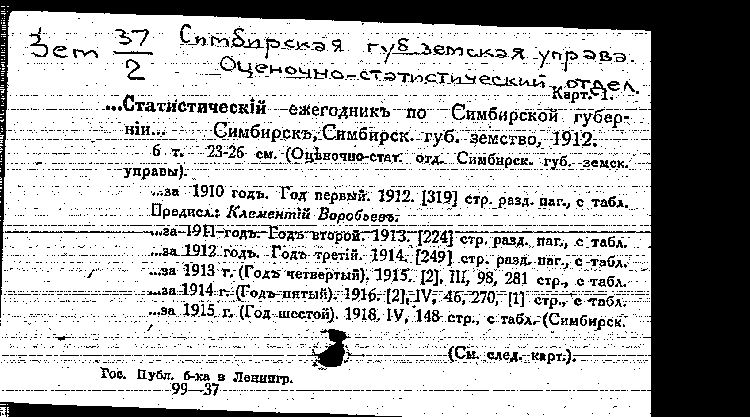 Зем 37/2 Симбирская губ. земская управа.
Оценочно-статистический отдел.
Карт. 1.
...Статистическій ежегодникъ по Симбирской губер-
ніи... Симбирскъ, Симбирск. губ. земство, 1912.
6 т. 23-26 см. (Оцѣночно-стат. отд. Симбирск. губ. земск.
управы).
...за 1910 годъ. Год первый. 1912. [319] стр. разд. паг., с табл.
Предисл.: Клементій Воробьевъ.
...за 1911 годъ. Годъ второй. 1913. [224] стр. разд. паг., с табл.
...за 1912 годъ. Годъ третій. 1914. [249] стр. разд. паг., с табл.
...за 1913 г. (Годъ четвертый). 1915. [2], III, 98, 281 стр., с табл.
...за 1914 г. (Годъ пятый). 1916. [2], IV, 46, 270, [1] стр., с табл.
...за 1915 г. (Год шестой). 1918. IV, 148 стр., с табл. (Симбирск.
(См. след. карт.).
Гос. Публ. б-ка в Ленингр.
99—37